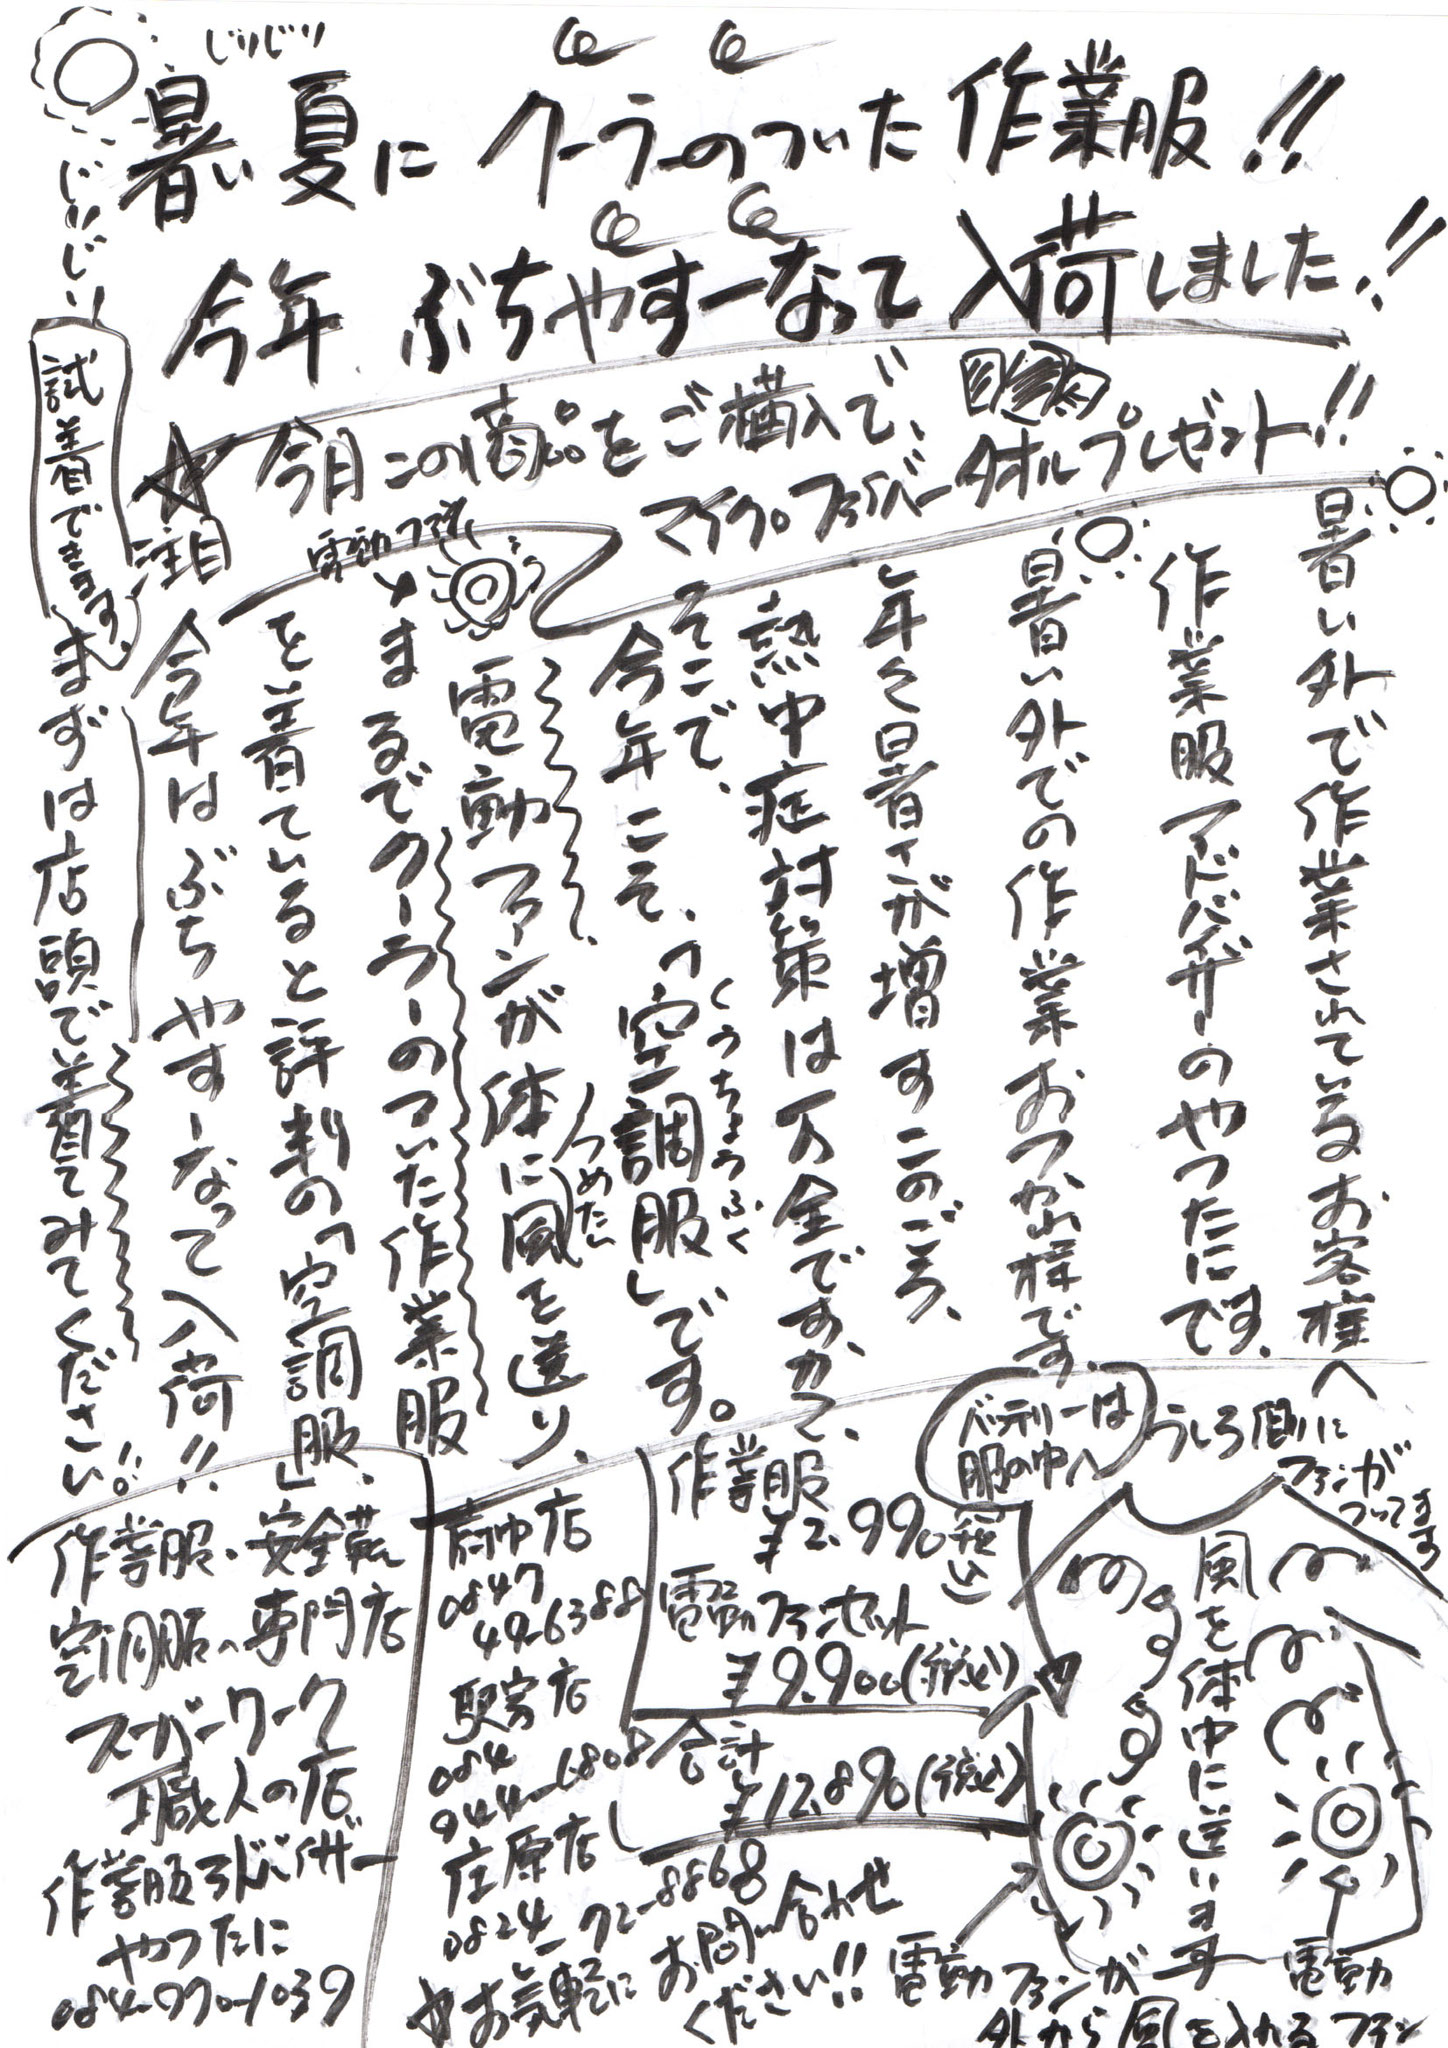 じりじり
暑い夏にクーラーのついた作業服!!
じりじり
今年ぶちやすーなって入荷しました!!
試着できます。
☆注目
今月この商品をご購入で、
マイクロファイバータオルプレゼント!!
暑い外で作業されているお客様へ
作業服アドバイザーのやつたにです。
暑い外での作業おつかれ様です
年々暑さが増すこのごろ、
熱中症対策は万全ですか?
そこで、
今年こそ、「空調服」です。
くうちょうふく
電動ファンが体に風を送り、
つめたい
まるでクーラーのついた作業服
を着ていると評判の「空調服」
今年はぶちやすーなって入荷!!
まずは店頭で着てみてください!!
バッテリーは
服の中へ
うしろ側に
ファンが
ついてます
風を体中に送います
電動ファンが
外から風を入れる
電動
ファン
作業服
¥2.990(税込)
電動ファンセット
¥9.900(税込)
合計
¥12.890(税込)
府中店
0847
49-6388
駅家店
084
944-6808
庄原店
0824-72-8868
☆お気軽に
お問い合わせ
ください!!
作業服・安全靴
空調服の専門店
スーパーワーク
職人の店
作業服アドバイザー
やつたに
084-970-1039